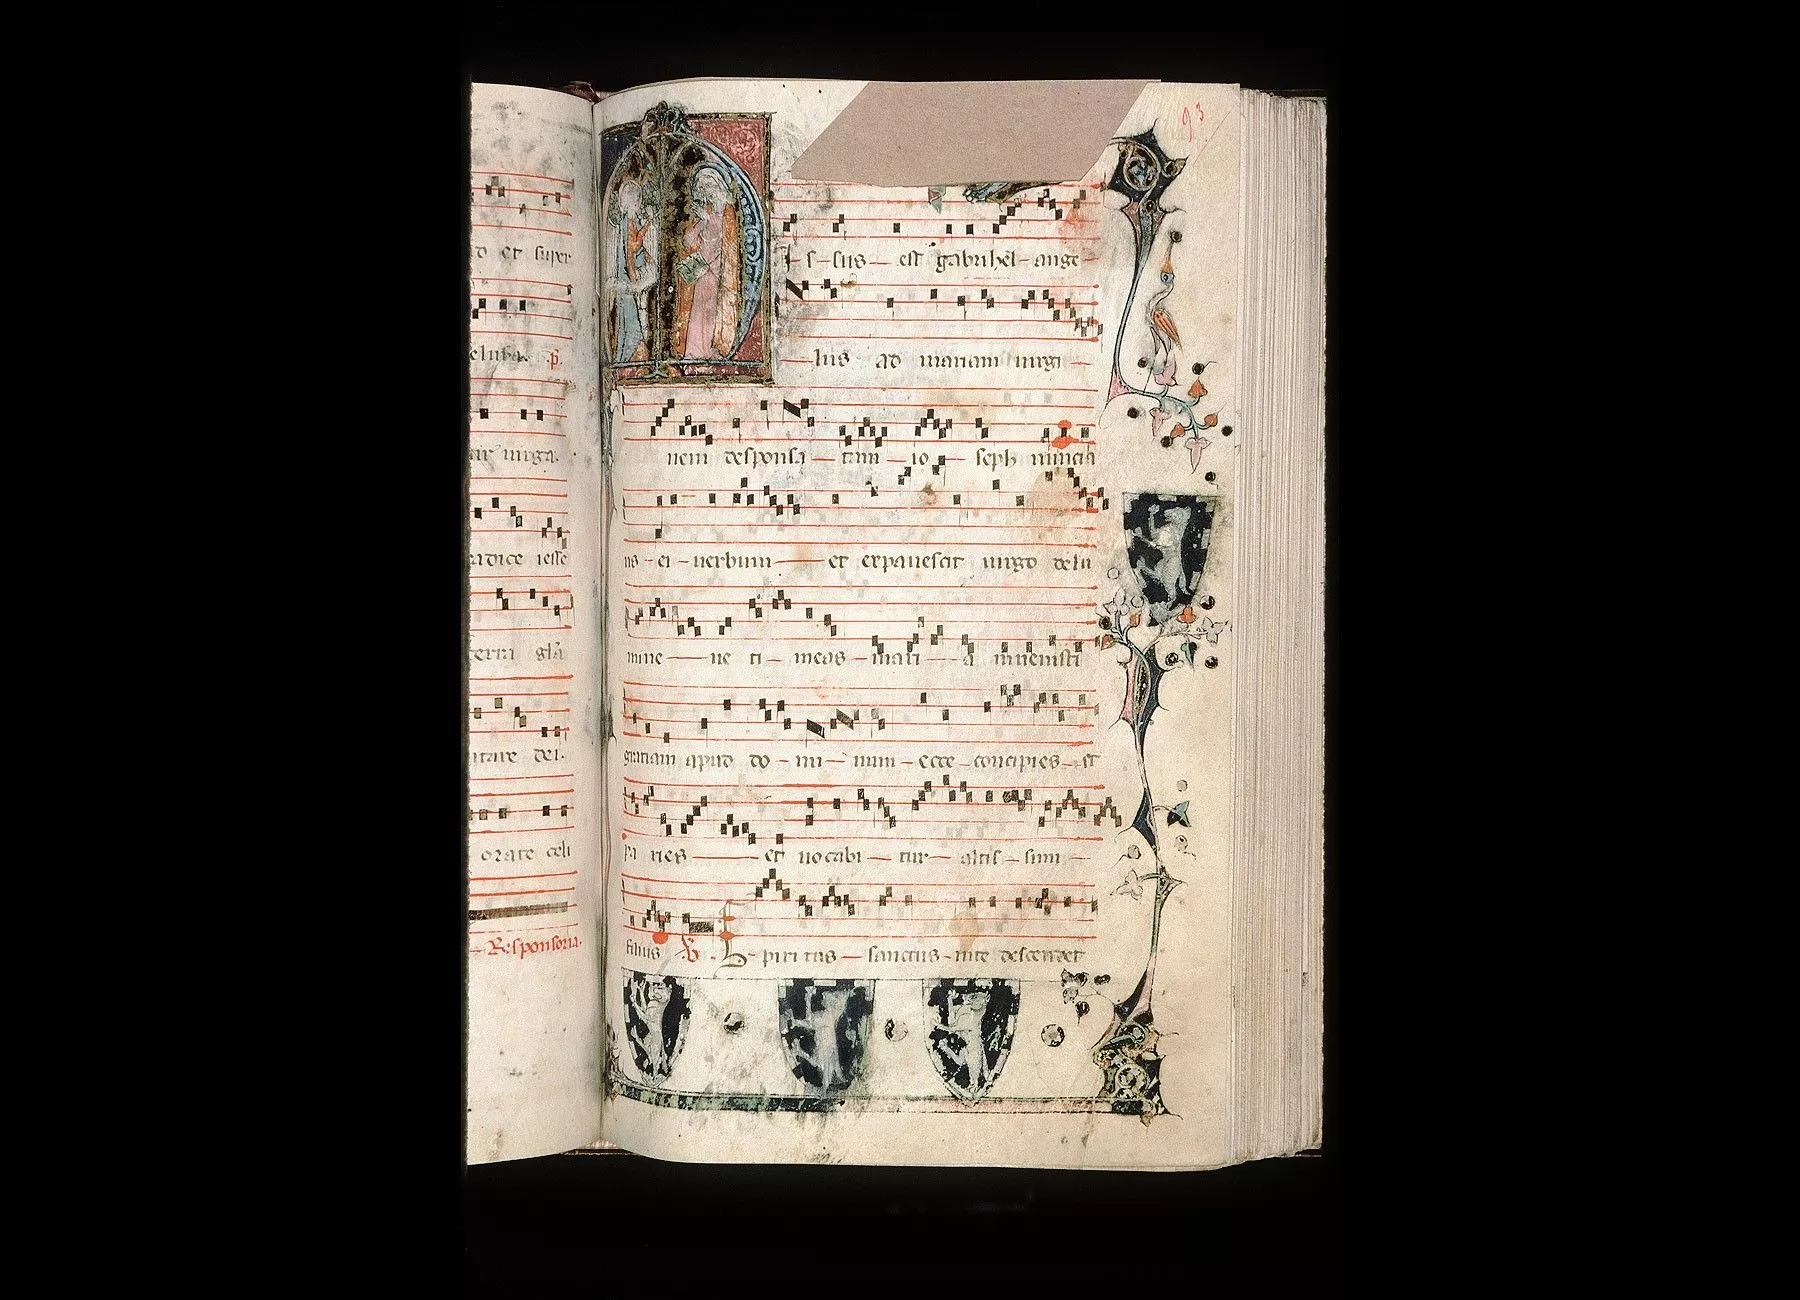 d et super
eluba. p.
ar uirga.
radice iesse
terra gla
uitare dei.
orate celi
Responsoria.
93
s - sus est gabrihel ange
lus ad mariam uirgi
nem desponsa - tam io - seph nuncia
ns - ei - uerbum et expauescit uirgo de lu
mine - ne ti - meas - mari - a inuenisti
gratiam apud do - mi - num - ecce concipies et
pa ries et uocabi - tur - altis - simi
filius V. Spiri tus - sanctus - in te descendet